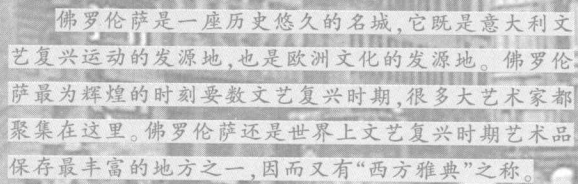 佛罗伦萨是一座历史悠久的名城,它既是意大利文
艺复兴运动的发源地,也是欧洲文化的发源地。佛罗伦
萨最为辉煌的时刻要数文艺复兴时期,很多大艺术家都
聚集在这里。佛罗伦萨还是世界上文艺复兴时期艺术品
保存最丰富的地方之一,因而又有“西方雅典”之称。